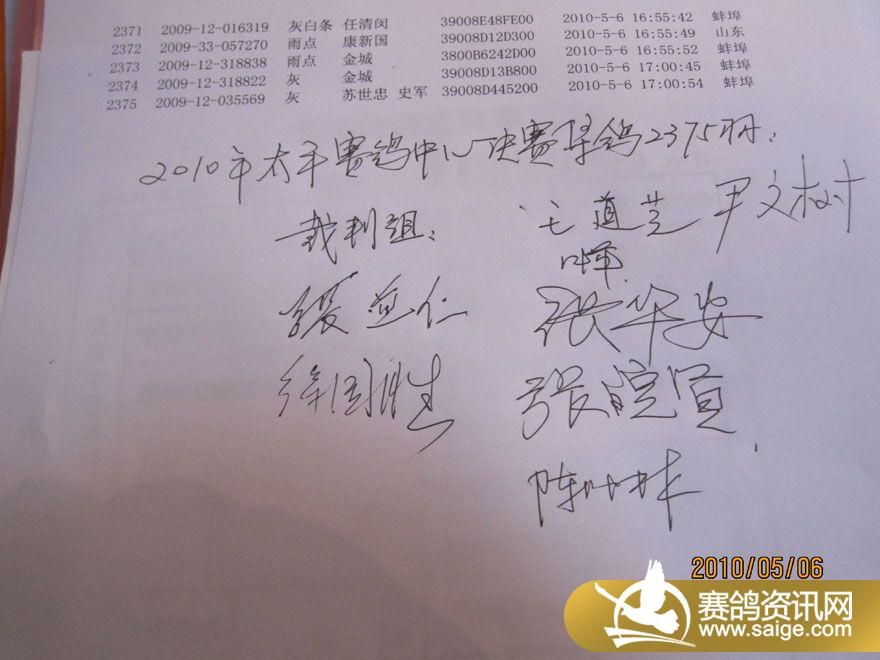 2371 2009-12-016319 灰白条 任清闵 39008E48FE00 2010-5-6 16:55:42 蚌埠
2372 2009-33-057270 雨点 康新国 39008D12D300 2010-5-6 16:55:49 山东
2373 2009-12-318838 雨点 金城 3800B6242D00 2010-5-6 16:55:52 蚌埠
2374 2009-12-318822 灰 金城 39008D13B800 2010-5-6 17:00:45 蚌埠
2375 2009-12-035569 灰 苏世忠 史军 39008D445200 2010-5-6 17:00:54 蚌埠
2010年太平赛鸽中心决赛集鸽2375羽:
裁判组: 王道芝 尹文树
晖
仁 张华安
徐国胜 张
陈
2010/05/06
赛鸽资讯网
www.saige.com